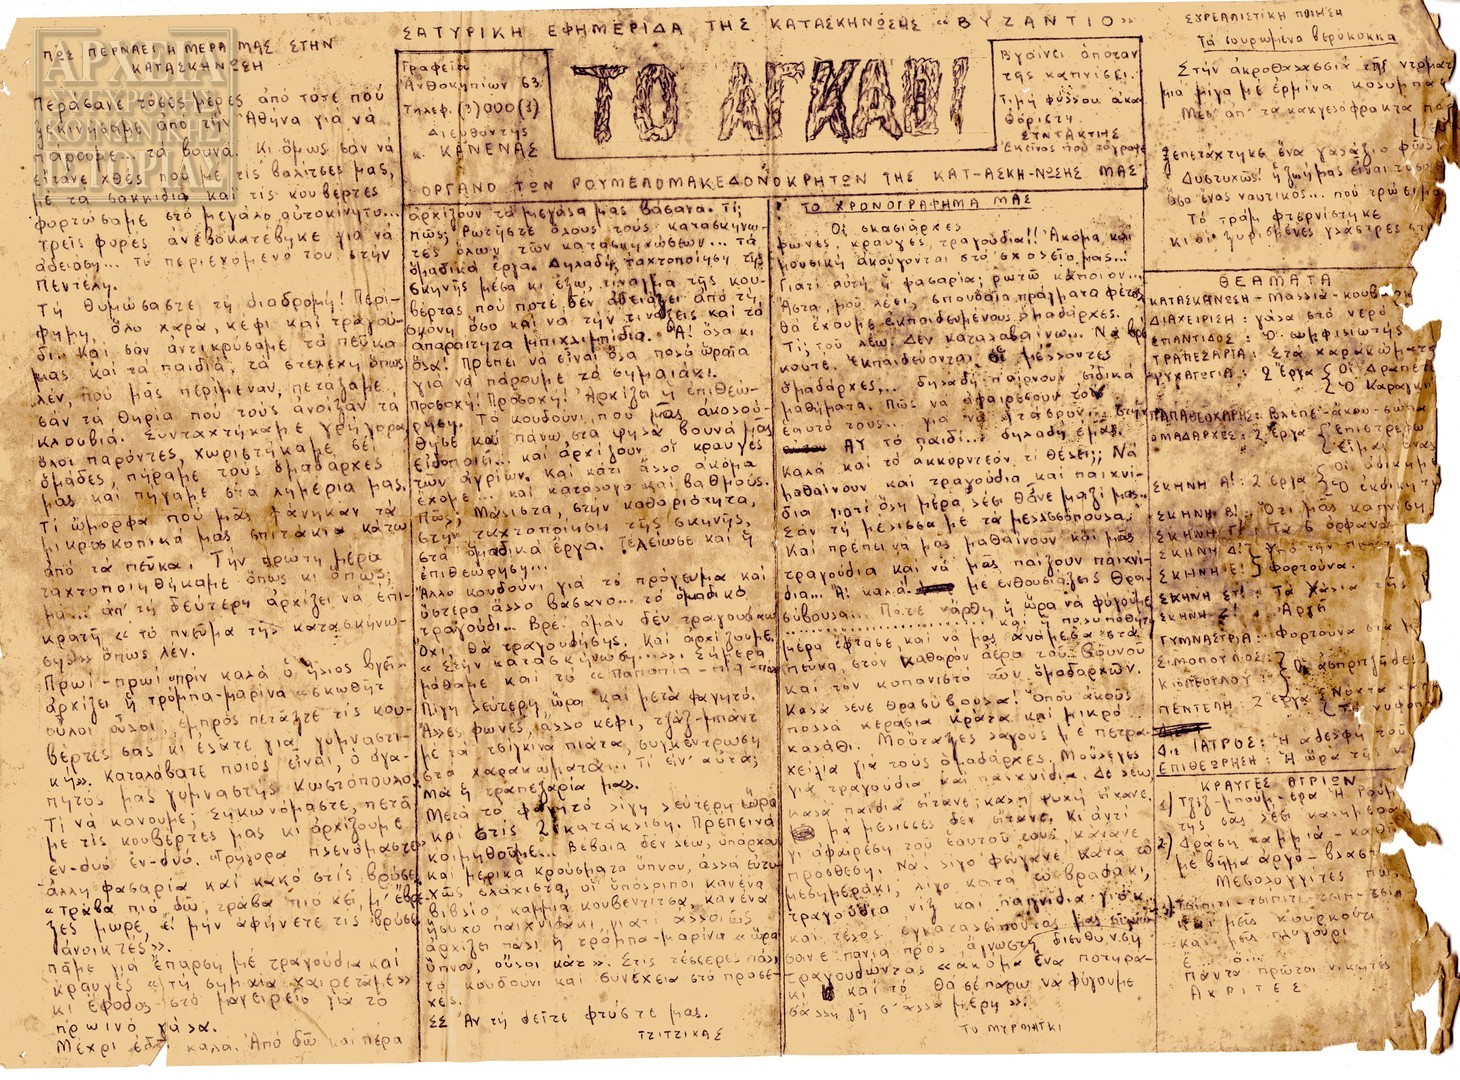 ΑΡΧΕΙΑ
ΣΥΓΧΡΟΝΗΣ
ΚΟΙΝΩΝΙΚΗΣ
ΙΣΤΟΡΙΑΣ
ΣΑΤΥΡΙΚΗ ΕΦΗΜΕΡΙΔΑ ΤΗΣ ΚΑΤΑΣΚΗΝΩΣΗΣ "ΒΥΖΑΝΤΙΟ"
Γραφεία
Ανθοκηπίων 63
Τηλεφ. (?)000(?)
Διευθυντής
κ. ΚΑΝΕΝΑΣ
ΤΟ ΑΓΚΑΘΙ
Βγαίνει όποταν
της καπνίσει.
Τιμή φύλλου ακα-
θόριστη
ΣΥΝΤΑΚΤΗΣ
Εκείνος που τόγραψε
ΟΡΓΑΝΟ ΤΩΝ ΡΟΥΜΕΛΟΜΑΚΕΔΟΝΟΚΡΗΤΩΝ ΤΗΣ ΚΑΤ-ΑΣΚΗ-ΝΩΣΗΣ ΜΑΣ
ΠΩΣ ΠΕΡΝΑΕΙ Η ΜΕΡΑ ΜΑΣ ΣΤΗΝ
ΚΑΤΑΣΚΗΝΩΣΗ
Περάσανε τόσες μέρες από τότε που
ξεκινήσαμε από την Αθήνα για να
πάρουμε τα βουνά. Κι όμως σαν να
είτανε χθες που με τις βαλίτσες μας,
με τα σακκίδια και τις κουβέρτες
φορτώσαμε στο μεγάλο αυτοκίνητο...
τρεις φορές ανεβοκατέβηκε για να
αδειάση... το περιεχόμενό του στην
Πεντέλη.
Τη θυμώσαστε τη διαδρομή! Περί-
φημη, όλο χαρά, κέφι και τραγού-
δι. Και σαν αντικρύσαμε τα πεύκα
μας και τα παιδιά, τα στελέχη όπως
λεν, που μας περίμεναν, πετάξαμε
σαν τα θηρία που τους άνοιξαν τα
κλουβιά. Συνταχτήκαμε γρήγορα
όλοι παρόντες, χωριστήκαμε σε
ομάδες, πήραμε τους ομαδάρχες
μας και πήγαμε στα λημέρια μας.
Τι όμορφα που μας φάνηκαν τα
μικροσκοπικά μας σπιτάκια κάτω
από τα πεύκα. Την πρώτη μέρα
ταχτοποιηθήκαμε όπως κι όπως;
μα... απ' τη δεύτερη αρχίζει να επι-
κρατή «το πνεύμα της κατασκήνω-
σης» όπως λεν.
Πρωί-πρωί πριν καλά ο ήλιος βγει
αρχίζει η τρόμπα-μαρίνα «σκωθήτ
ούλοι ούλοι, εμπρός πετάξτε τις κου-
βέρτες σας κι ελάτε για γυμναστι-
κή». Καταλάβατε ποιος είναι, ο αγα-
πητός μας γυμναστής Κωστόπουλος
Τι να κάνουμε; Σηκωνόμαστε, πετά
με τις κουβέρτες μας κι αρχίζουμε
εν-δυο εν-δυο. Γρήγορα πλενόμαστε
άλλη φασαρία και κακό στις βρύσες
«τράβα πιο δω, τράβα πιο κει, μ' έβρε
ξες μωρέ, ει μην αφήνετε τις βρύσες
ανοικτές».
πάμε για έπαρση με τραγούδια και
κραυγές «τη σημαία χαιρετάμε»
κι έφοδος στο μαγειρείο για το
πρωινό γάλα.
Μέχρι εδώ καλά. Από δω και πέρα
αρχίζουν τα μεγάλα μας βάσανα. Τι;
πώς; Ρωτήστε όλους τους κατασκηνω-
τές όλων των κατασκηνώσεων... τα
ομαδικά έργα. Δηλαδή, ταχτοποίηση της
σκηνής μέσα κι έξω, τίναγμα της κου-
βέρτας που ποτέ δεν αδειάζει από τη
σκόνη όσο και να την τινάξεις και τα
απαραίτητα μπιχλιμπίδια. Α! όλα κι
όλα! Πρέπει να είναι όλα πολύ ωραία
για να πάρουμε το σημαιάκι.
Προσοχή! Προσοχή! Αρχίζει η επιθεώ-
ρηση. Το κουδούνι που μας ακολού-
θησε και πάνω στα ψηλά βουνά μας
ειδοποιεί... και αρχίζουν οι κραυγές
των αγρίων. Και κάτι άλλο ακόμα
έχομε... και κατάλογο και βαθμούς.
Πώς; Μάλιστα, στην καθαριότητα,
στην ταχτοποίηση της σκηνής,
στα ομαδικά έργα. Τελείωσε και η
επιθεώρηση...
Άλλο κουδούνι για το πρόγευμα και
ύστερα άλλο βάσανο... το ομαδικό
τραγούδι... Βρε αμάν δεν τραγουδάω
Όχι, θα τραγουδήσης. Και αρχίζουμε
«Στην κατασκήνωση...». Σήμερα
μάθαμε και το
Λίγη λεύτερη ώρα και μετά φαγητό.
Άλλες φωνές, άλλο κέφι, τζαζ-μπαντ
με τα τσίγκινα πιάτα, συγκέντρωση
στα χαρακώματα... Τι είν' αυτά;
Μα η τραπεζαρία μας.
Μετά το φαγητό λίγη λεύτερη ώρα
και στις 2 κατάκλιση. Πρέπει να
κοιμηθούμε... Βέβαια δεν λέω, υπάρχουν
και μερικά κρούσματα ύπνου, αλλά ευτυ-
χώς ελάχιστα, οι υπόλοιποι κανένα
βιβλίο καμμιά κουβεντίτσα, κανένα
ήσυχο παιχνιδάκι, γιατί αλλοιώς
αρχίζει πάλι η τρόμπα-μαρίνα «ώρα
ύπνου, ούλοι κάτ». Στις τέσσερες πάλι
το κουδούνι και συνέχεια στο προσε-
χές.
ΣΣ Αν τη δείτε φτύστε μας.
ΤΖΙΤΖΙΚΑΣ
ΤΟ ΧΡΟΝΟΓΡΑΦΗΜΑ ΜΑΣ
Οι σκασιάρχες
Φωνές, κραυγές, τραγούδια!! Ακόμα και
μουσική ακούγονται στο σχολείο μας...
Γιατί αυτή η φασαρία; ρωτώ κάποιον...
Άστα, μου λέει, σπουδαία πράγματα φέτος
θα έχουμε εκπαιδευμένους ομαδάρχες.
Τι; του λέω. Δεν καταλαβαίνω... Να βρε
κουτέ. Εκπαιδεύονται οι μέλλοντες
ομαδάρχες... δηλαδή παίρνουν ειδικά
μαθήματα. Πώς να αφαιρέσουν τον
εαυτό τους... για να
ΑΥ το παιδί... δηλαδή εμάς.
Καλά και το ακκορντεόν τι θέλει;; Να
μαθαίνουν και τραγούδια και παιχνί-
δια γιατί όλη μέρα λέει θάνε μαζί μας...
Σαν τη μέλισσα με τα μελισσόπουλα.
Και πρέπει να μας μαθαίνουν και μας
τραγούδια και να μας παίζουν παιχνί-
δια... Α! καλά! με ενθουσιάζεις Θρα-
σύβουλα... Πότε νάρθη η ώρα να φύγουμε
και η πολυπόθητη
μέρα έφτασε, και να μας ανάμεσα στα
πεύκα, στον καθαρόν αέρα του βουνού
και τον κοπανιστό των ομαδαρχών.
Καλά λένε Θρασύβουλα! Όπου ακούς
πολλά κεράσια κράτα και μικρό
καλάθι. Μούταξες λαγούς με πετρα-
χείλια για τους ομαδάρχες. Μούλεγες
για τραγούδια και παιχνίδια. Δε λέω
καλά παιδιά είτανε, καλή ψυχή είχανε
μα μέλισσες δεν είτανε. Κι αντί
γι αφαίρεση του εαυτού τους, κάνανε
πρόσθεση. Να! λίγο φεύγανε κατά το
μεσημεράκι, λίγο κατά το βραδάκι,
τραγούδια νιξ και παιχνίδια γιοκ
και τέλος εγκαταλείποντάς μας
πανιά προς άγνωστη διεύθυνση
τραγουδώντας «ακόμα ένα ποτηρά-
κι και το θα σε πάρω να φύγουμε
σ' άλλη γη σ' άλλα μέρη».
ΤΟ ΜΥΡΜΗΓΚΙ
ΣΥΡΕΑΛΙΣΤΙΚΗ ΠΟΙΗΣΗ
Τα σουρωμένα βερύκοκκα
Στην ακροθαλασσιά της ντομάτ
μια μίγα με ερμίνα κολυμπά
Μες απ' τα κακγελόφρακτα
ξεπετάχτηκε ένα γαλάζιο
Δυστυχώς η ζωή μας είναι τόσο
όσο ένας ναυτικός... που τρώει μ
Το τραμ φτερνίστηκε
κι οι ξυρισμένες γλάστρες
ΘΕΑΜΑΤΑ
ΚΑΤΑΣΚΗΝΩΣΗ - Μαλλιά - κουβάρ
ΔΙΑΧΕΙΡΙΣΗ: γάλα στο νερό
ΣΠΑΝΤΙΔΟΣ: Ο ωμφισιώτης
ΤΡΑΠΕΖΑΡΙΑ: Στα χαρακώματα
ΨΥΧΑΓΩΓΙΑ: 2 έργα { Οι Δραπέτ
{ Ο Καραγκι
ΠΑΠΑΘΕΟΧΑΡΗΣ: Βλέπε - άκου - σώπα
ΟΜΑΔΑΡΧΕΣ: 2 έργα { Επιστρέφω
{ Είμαι ένας
ΣΚΗΝΗ Α!: 2 έργα { Οι άδικημέ
{ Ο εκδικητ
ΣΚΗΝΗ Β!: Ότι μας καπνίση
ΣΚΗΝΗ Γ!: Τα 6 ορφανά
ΣΚΗΝΗ Δ! } Από την
ΣΚΗΝΗ Ε! } φορτούνα.
ΣΚΗΝΗ ΣΤ!: Τα χάλια της
ΣΚΗΝΗ Ζ!: Αργή
ΓΥΜΝΑΣΤΡΙΑ: Φορτούνα
ΣΙΜΟΠΟΥΛΟΣ: }
ΠΕΝΤΕΛΗ: 2 έργα { Νύχτα
Δις ΙΑΤΡΟΣ: Η αδελφή του
ΕΠΙΘΕΩΡΗΣΗ: Η ώρα τη
ΚΡΑΥΓΕΣ ΑΓΡΙΩΝ
1) Τζιζ-μπουμ-ερα Η Ρουμ
της σας λέει καλημέρα
2) Δράση καμμιά - καθ
με βήμα αργό - βλαστ
Μεσολογγίτες
3) Τσιπιτι-τσιπιτι-τσιπ-τσιπ
και μεις κουρκούτι
και μεις πλυγούρι
ε... ο...
πάντα πρώτοι νικητές
ΑΚΡΙΤΕΣ